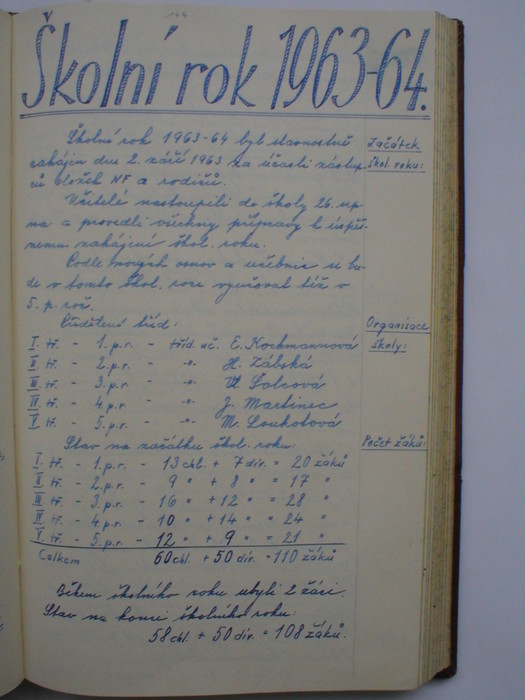 144
Školní rok 1963-64.
Školní rok 1963-64 byl slavnostně
zahájen dne 2. září 1963 za účasti zástup-
ců složek NF a rodičů.
Začátek
škol. roku:
Učitelé nastoupili do školy 26. srp-
na a provedli všechny přípravy k úspěš-
nému zahájení škol. roku.
Podle nových osnov a učebnic se bu-
de v tomto škol. roce vyučovat též v
5. p. roč.
Organisace
školy:
Rozdělení tříd:
I. tř. - 1. p.r. - tříd. uč. E. Kochmannová
II. tř. - 2. p.r. - " - H. Zábská
III. tř. - 3. p.r. - " - Vl. Solcová
IV. tř. - 4. p.r. - " - J. Martinec
V. tř. - 5. p.r. - " - M. Loukotová
Počet žáků:
Stav na začátku škol. roku:
I. tř. - 1. p.r. - 13 chl. + 7 div. = 20 žáků
II. tř. - 2. p.r. - 9 " + 8 " = 17 "
III. tř. - 3. p.r. - 16 " + 12 " = 28 "
IV. tř. - 4. p.r. - 10 " + 14 " = 24 "
V. tř. - 5. p.r. - 12 " + 9 " = 21 "
Celkem 60 chl. + 50 div. = 110 žáků
Během školního roku ubyli 2 žáci.
Stav na konci školního roku:
58 chl. + 50 div. = 108 žáků.